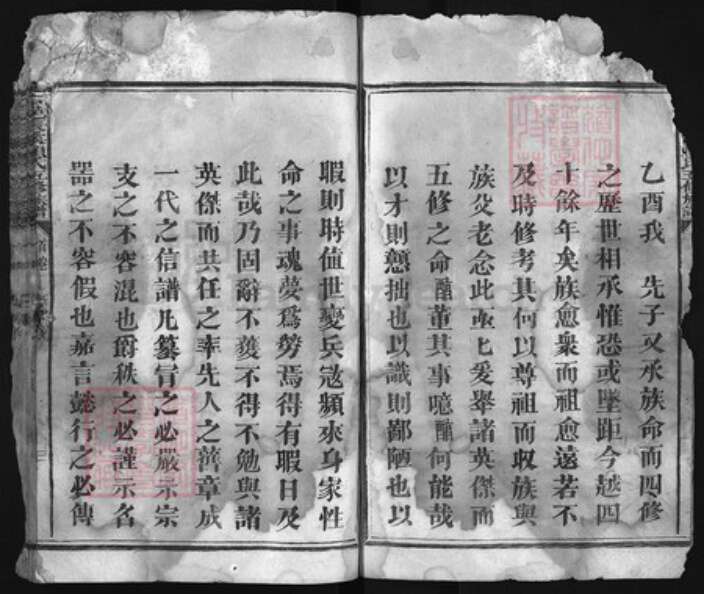 乙酉我　先子又承族命而四修
之歷世相承惟恐或墜距今越四
十餘年矣族愈衆而祖愈遠若不
及時修考其何以尊祖而収族與
族父老念此 爰舉諸英傑而
五修之命釀董其事噫釀何能哉
以才則戇拙也以識則鄙陋也以
暇則時值世變兵寇頻來身家性
命之事魂夢爲勞焉得有暇日及
此哉乃固辭不獲不得不勉與諸
英傑而共任之率先人之舊章成
一代之信譜凡纂 之必嚴示宗
支之不容混也爵秩之必謹示名
器之不容假也嘉言懿行之必傳